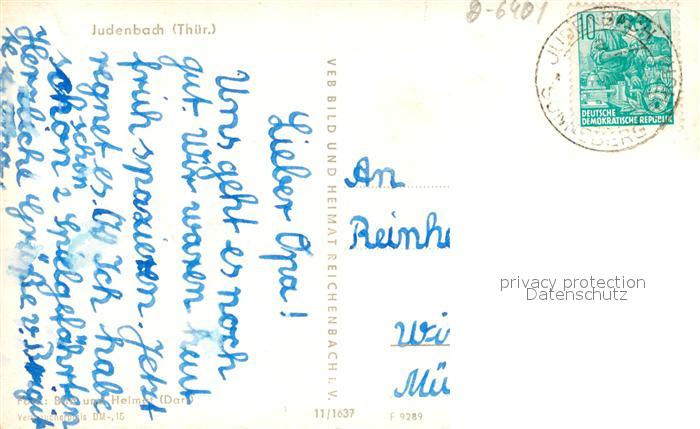 Judenbach (Thür.)
D-6401
10
DEUTSCHE
DEMOKRATISCHE REPUBLIK
JUDENBACH
SONNEBERG
Lieber Opa!
Uns geht es noch
gut. Wir waren heut
früh spazieren. Jetzt
regnet es. Ich habe
schon
schön 2 Spielgefährtin
Herzliche Grüße v.
VEB BILD UND HEIMAT REICHENBACH i. V.
An
Reinh
Wi
Mü
privacy protection
Datenschutz
Foto: Bild und Heimat (Dar
Verbraucherpreis DM -,15
11/1637
F 9289